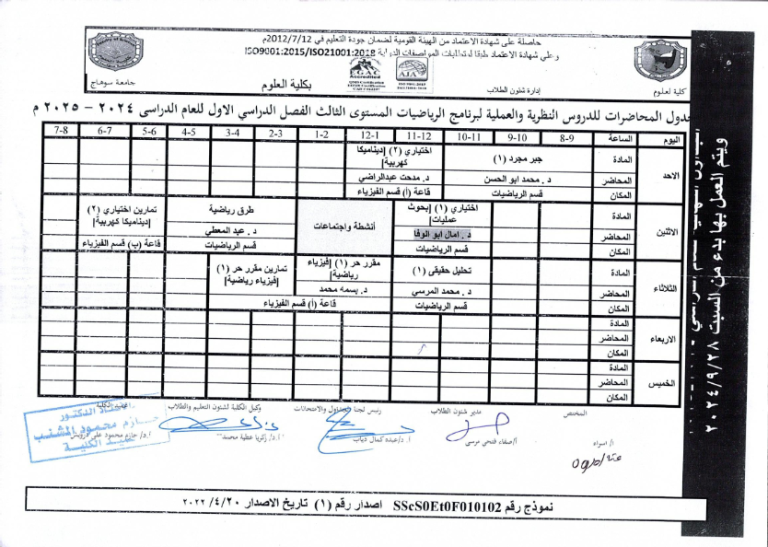 حاصلة على شهادة الاعتماد من الهيئة القومية لضمان جودة التعليم في 2012/7/12م
وعلى شهادة الاعتماد طبقا لمتطلبات المواصفات الدولية ISO9001:2015/ISO21001:2018
جامعة سوهاج
EGAC
Accredited
AJA
بكلية العلوم
إدارة شئون الطلاب
كلية العلوم
جدول المحاضرات للدروس النظرية والعملية لبرنامج الرياضيات المستوى الثالث الفصل الدراسي الاول للعام الدراسى ٢٠٢٤ - ٢٠٢٥ م
اليوم الساعة 8-9 9-10 10-11 11-12 12-1 1-2 2-3 3-4 4-5 5-6 6-7 7-8
الاحد
المادة جبر مجرد (١) اختياري (٢) [ديناميكا كهربية]
المحاضر د. محمد ابو الحسن د. مدحت عبدالراضي
المكان قسم الرياضيات قاعة (أ) قسم الفيزياء
الاثنين
المادة اختياري (١) [بحوث عمليات] أنشطة واجتماعات طرق رياضية تمارين اختياري (٢) [ديناميكا كهربية]
المحاضر د. امال ابو الوفا د. عبد المعطي
المكان قسم الرياضيات قسم الرياضيات قاعة (ب) قسم الفيزياء
الثلاثاء
المادة تحليل حقيقى (١) مقرر حر (١) [فيزياء رياضية] تمارين مقرر حر (١) [فيزياء رياضية]
المحاضر د. محمد المرسي د. بسمه محمد
المكان قسم الرياضيات قاعة (أ) قسم الفيزياء
الاربعاء
المادة
المحاضر
المكان
الخميس
المادة
المحاضر
المكان
ويتم العمل بها بدء من السبت ٢٠٢٤/٩/٢٨
المختص مدير شئون الطلاب رئيس لجنة الجداول والامتحانات وكيل الكلية لشئون التعليم والطلاب عميد الكلية
ا/ اسراء أ/صفاء فتحي مرسى أ.د/عبده كمال دياب أ.د/ زكريا عطية محمد أ.د/ حازم محمود على درويش
الاستاذ الدكتور
حازم محمود الشنب
عميد الكلية
نموذج رقم SScS0Et0F010102 اصدار رقم (١) تاريخ الاصدار ٢٠٢٢/٤/٢٠